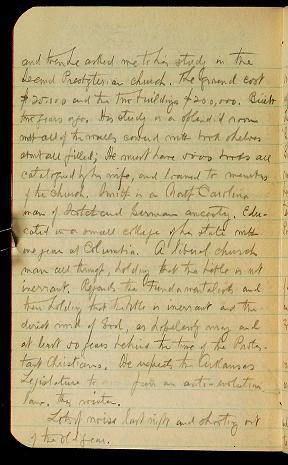 and then he asked me to his study in the
Second Presbyterian church. The ground cost
$25.000 and the two buildings $200,000. Built
two years ago. His study is a splendid room
with all of the walls covered with book shelves
almost all filled; He must have books all
catalogued by his wife, and loaned to members
of the church. Smith is a North Carolina
man of Scotch and German ancestry. Edu-
cated in a small college of his state with
one year at Columbia. A liberal church
man all through, holding that the bible is not
inerrant. Regards the Fundamentalists and
their holding that the bible is inerrant and the
direct word of God, as hopelessly wrong and
at least 50 years behind the time of the Protes-
tant Christians. He expects the Arkansas
Legislature to pass an anti-evolution
law, this winter.
Lots of noise last night and shooting out
of the old year.